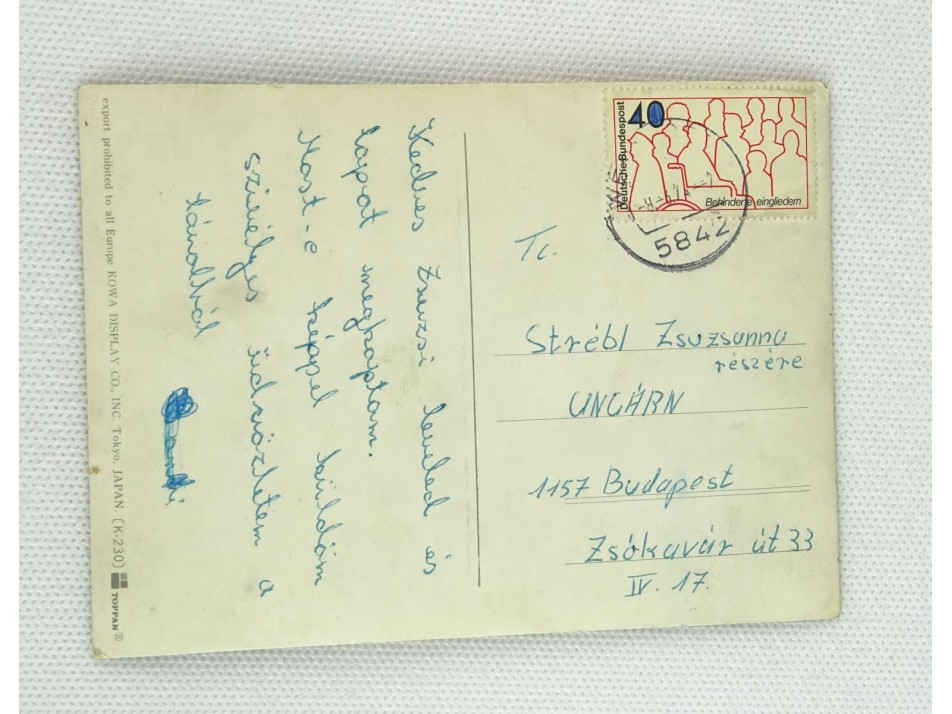 Kedves Zsuzsi leveled és
lapot megkaptam.
Most-e képpel küldöm
szívélyes üdvözletem a
távolból
export prohibited to all Europe KOWA DISPLAY CO., INC. Tokyo, JAPAN. [K-230] TOPPAN®
Deutsche Bundespost
40
Behinderte eingliedern
5842
Tc.
Strébl Zsuzsanna
részére
UNGÁRN
1157 Budapest
Zsókavár út 33
IV. 17.